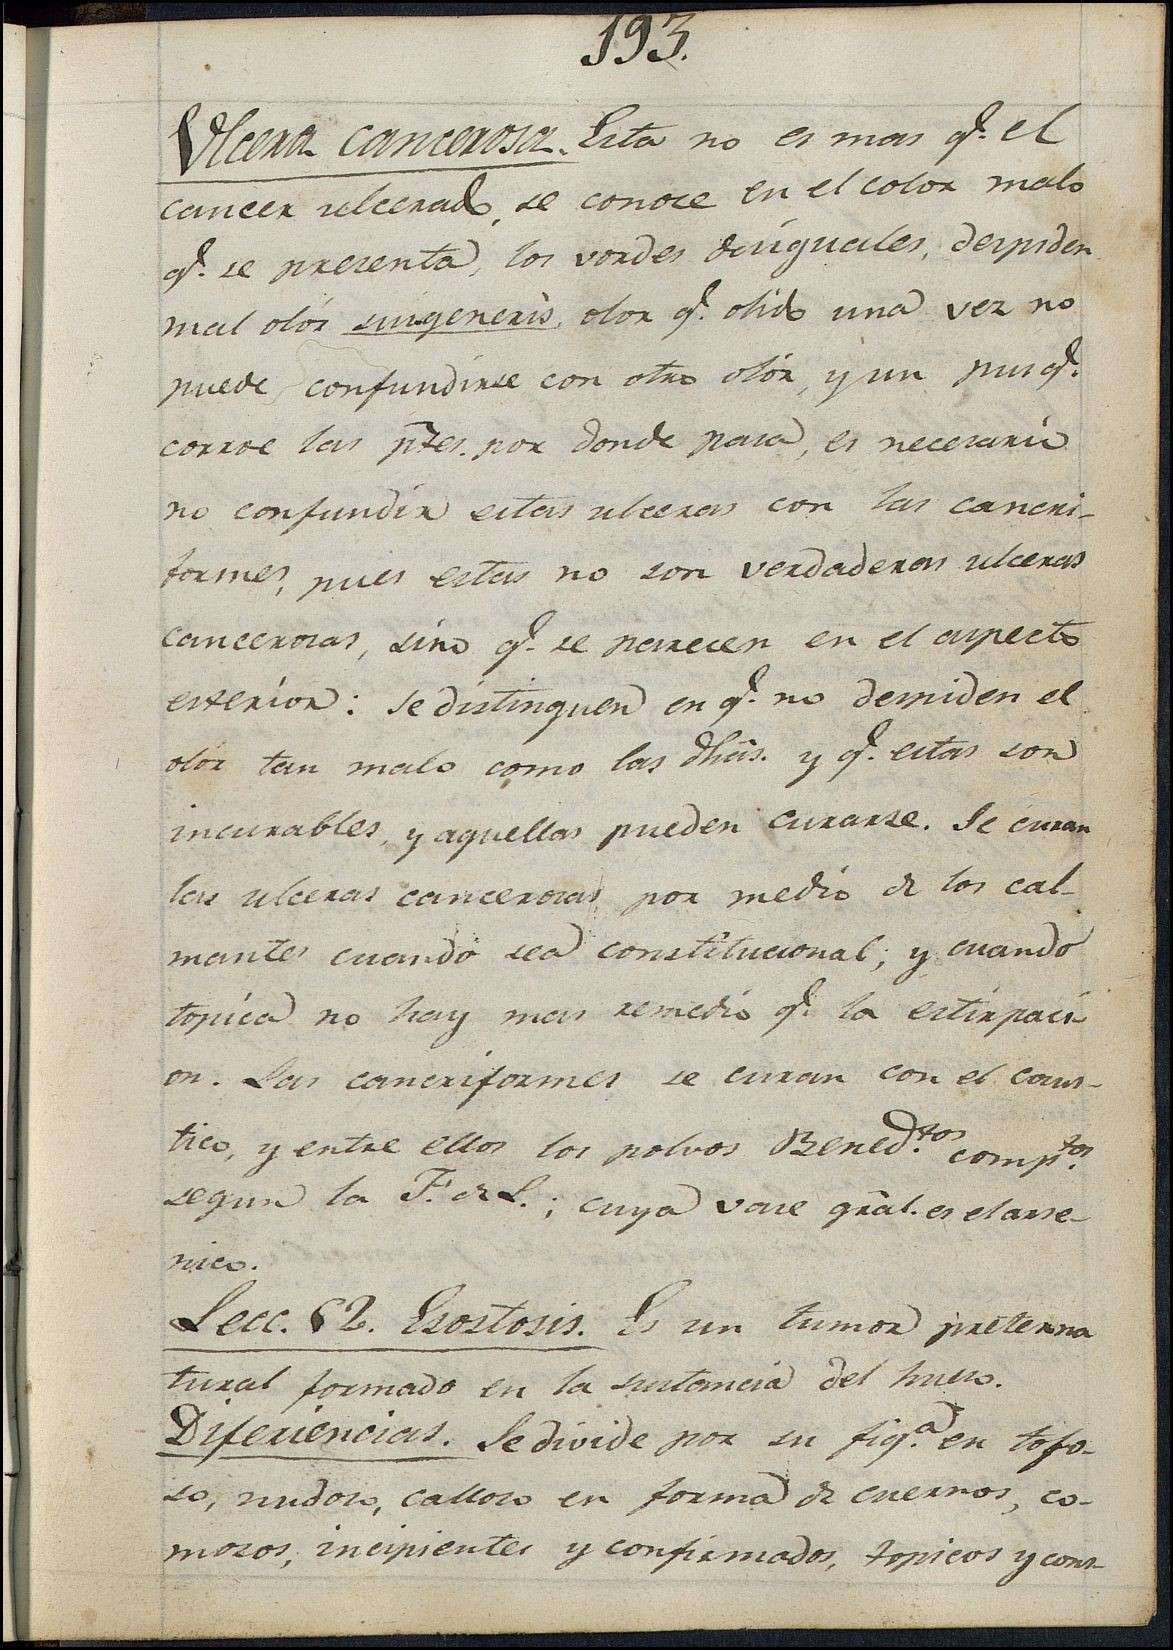 193.
Ulcera cancerosa. Esta no es mas q.e el
cancer ulcerado, se conoce en el color malo
q.e se presenta, los vordes desiguales, despiden
mal olór suigeneris, olor q.e olido una vez no
puede confundirse con otro olór, y un pus q.e
corroe las ptes. por donde pasa, es necesario
no confundir estas ulceras con las cancri-
formes, pues estas no son verdaderas ulceras
cancerosas, sino q.e se parecen en el aspecto
esterior: se distinguen en q.e no despiden el
olor tan malo como las dhas. y q.e estas son
incurables, y aquellas pueden curarse. Se curan
las ulceras cancerosas por medio de los cal-
mantes cuando sea constitucional; y cuando
topica no hay mas remedio q.e la estirpaci-
on. Las cancriformes se curan con el caus-
tico, y entre ellos los polvos Bened.tos comp.tos
segun la F. de L.; cuya vase gral. es el arse-
nico.
Lecc. 62. Esostosis. Es un tumor preterna
tural formado en la sustancia del hueso.
Diferiencias. Se divide por su fig.a en tofo-
so, nudoso, calloso en forma de cuernos, co-
mosos, incipientes y confirmados, topicos y cons-